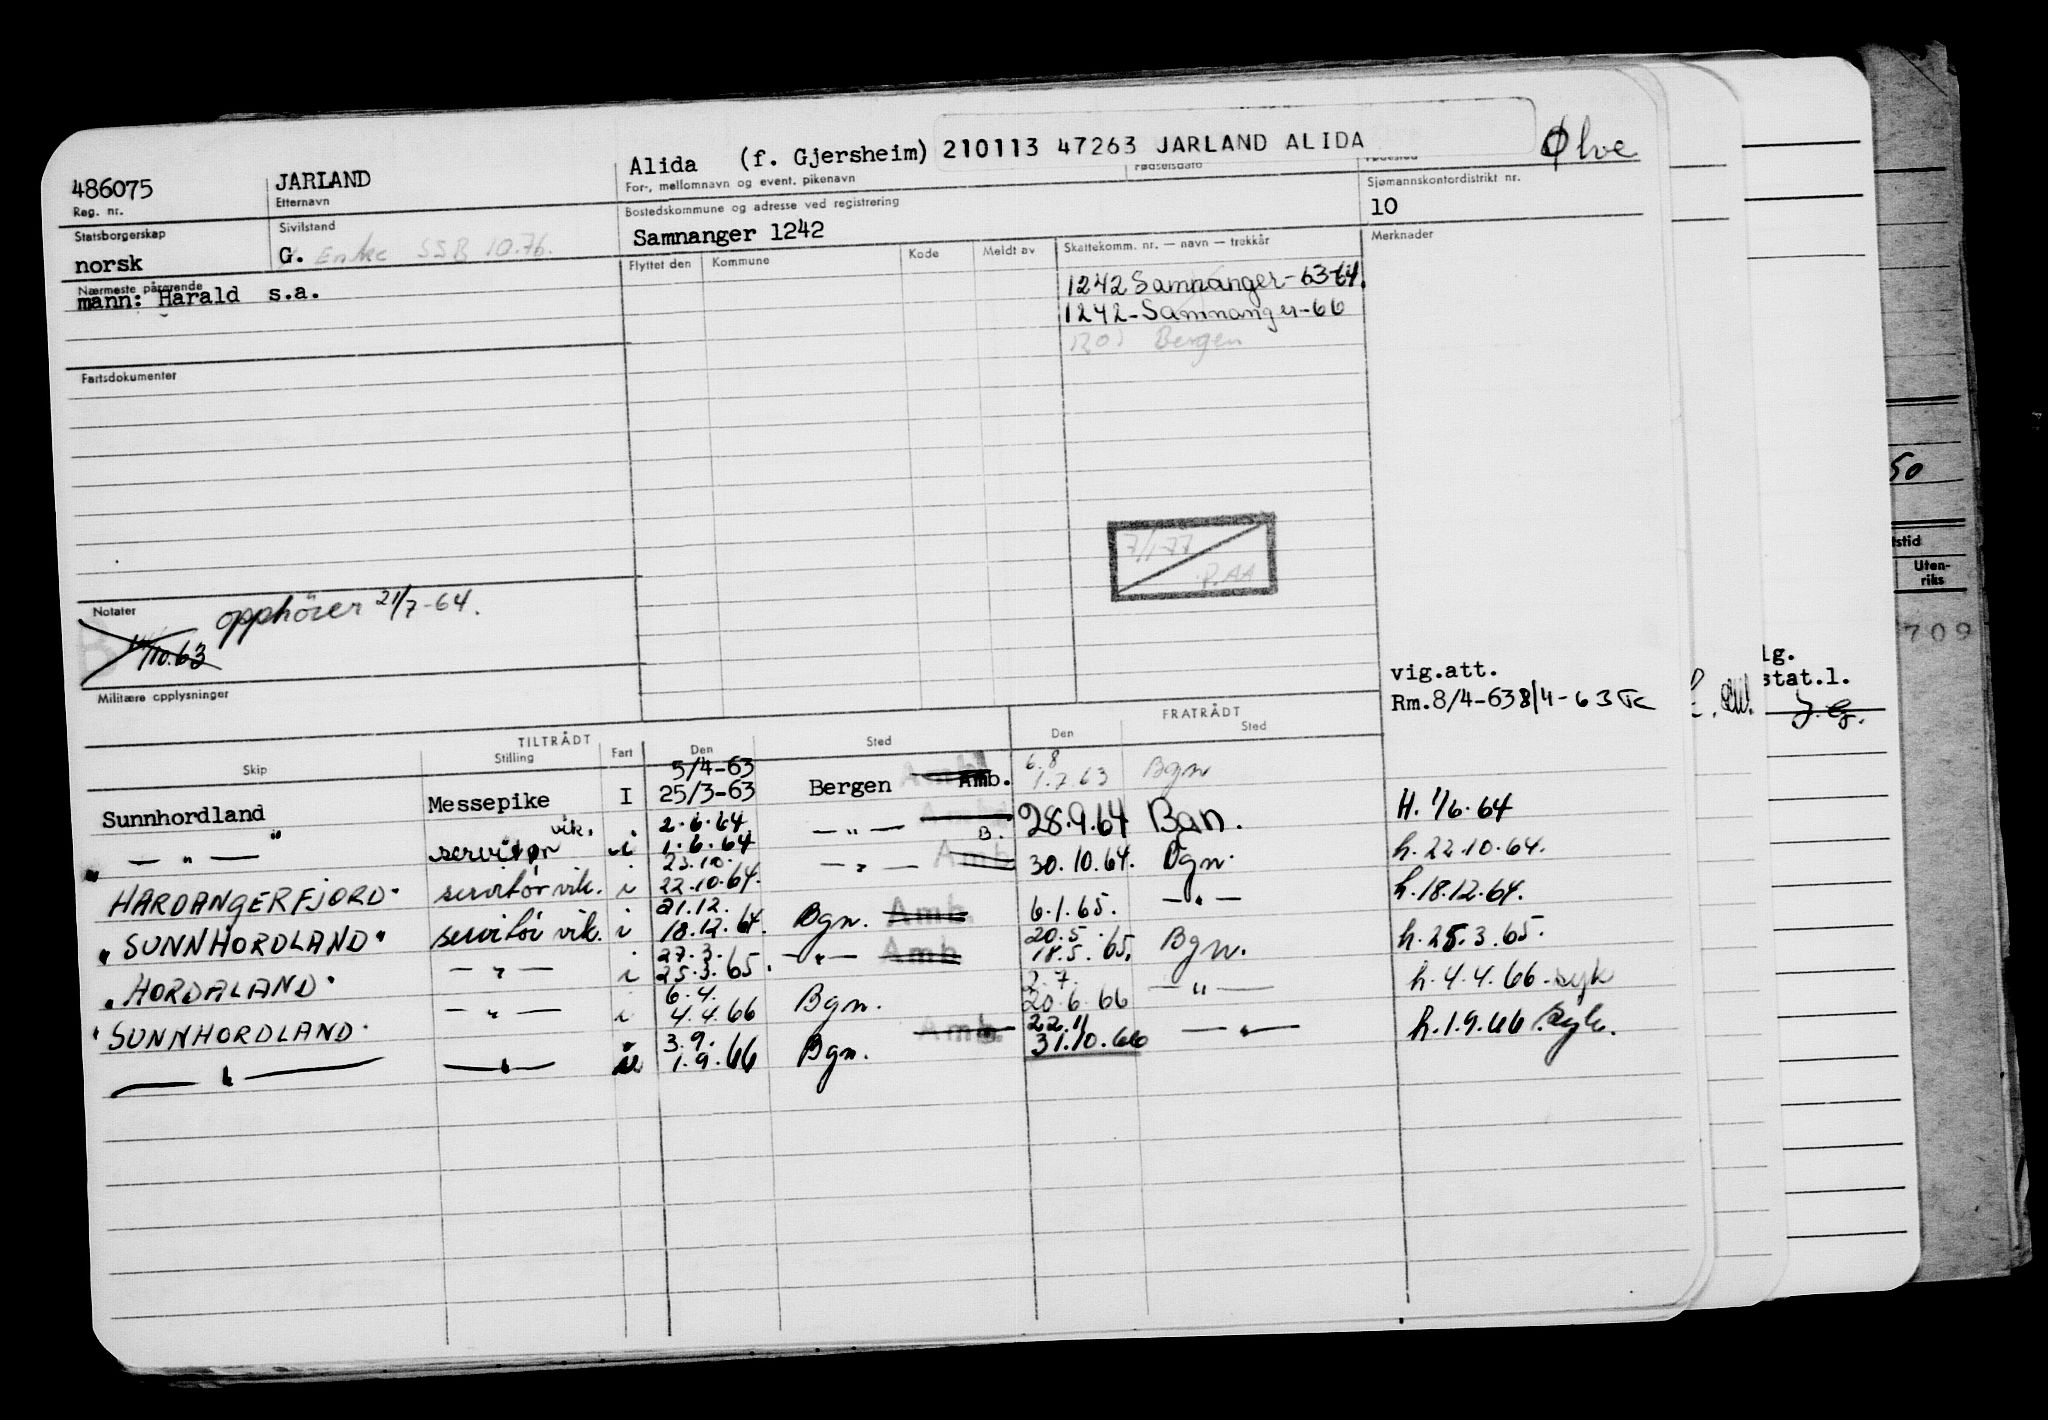 486075 JARLAND Alida (f. Gjersheim) 210113 47263 JARLAND ALIDA Ølve
Reg. nr. Etternavn For-, mellomnavn og event. pikenavn Fødselsdato Fødested
Statsborgerskap Sivilstand Bostedskommune og adresse ved registrering Sjømannskontordistrikt nr.
norsk G. Enke SSB 10.76. Samnanger 1242 10
Nærmeste pårørende Flyttet den Kommune Kode Meldt av Skattekomm. nr. — navn — trekkår Merknader
mann: Harald s.a.
1242 Samnanger-63-64.
1242-Samnanger-66
1301 Bergen
Fartsdokumenter
50
7/1-77
P.AA
tstid
Uten-
riks
Notater opphører 21/7-64.
10.63
709
lg.
stat.l.
Militære opplysninger
vig.att.
Rm.8/4-63 8/4-63
TILTRÅDT FRATRÅDT
Skip Stilling Fart Den Sted Den Sted
5/4-63 6.8
Sunnhordland Messepike I 25/3-63 Bergen Amb. 1.7.63 Bgn
2.6.64
— " — " servitør vik. i 1.6.64 — " — B. 28.9.64 Bgn. H. 1/6.64
23.10.
HARDANGERFJORD" servitør vik. i 22.10.64. — " — Amb 30.10.64. Bgn. h. 22.10.64.
21.12.
"SUNNHORDLAND" servitør vik. i 18.12.64. Bgn. Amb. 6.1.65. — " — h.18.12.64.
27.3. 20.5.
"HORDALAND" — " — i 25.3.65. — " — Amb 18.5.65. Bgn. h.25.3.65.
6.4. 2.7.
"SUNNHORDLAND" — " — i 4.4.66 Bgn. 20.6.66 — " — h.4.4.66. syk
3.9. 22.11
— " — — " — i 1.9.66 Bgn. Amb. 31.10.66 — " — h.1.9.66 syk.